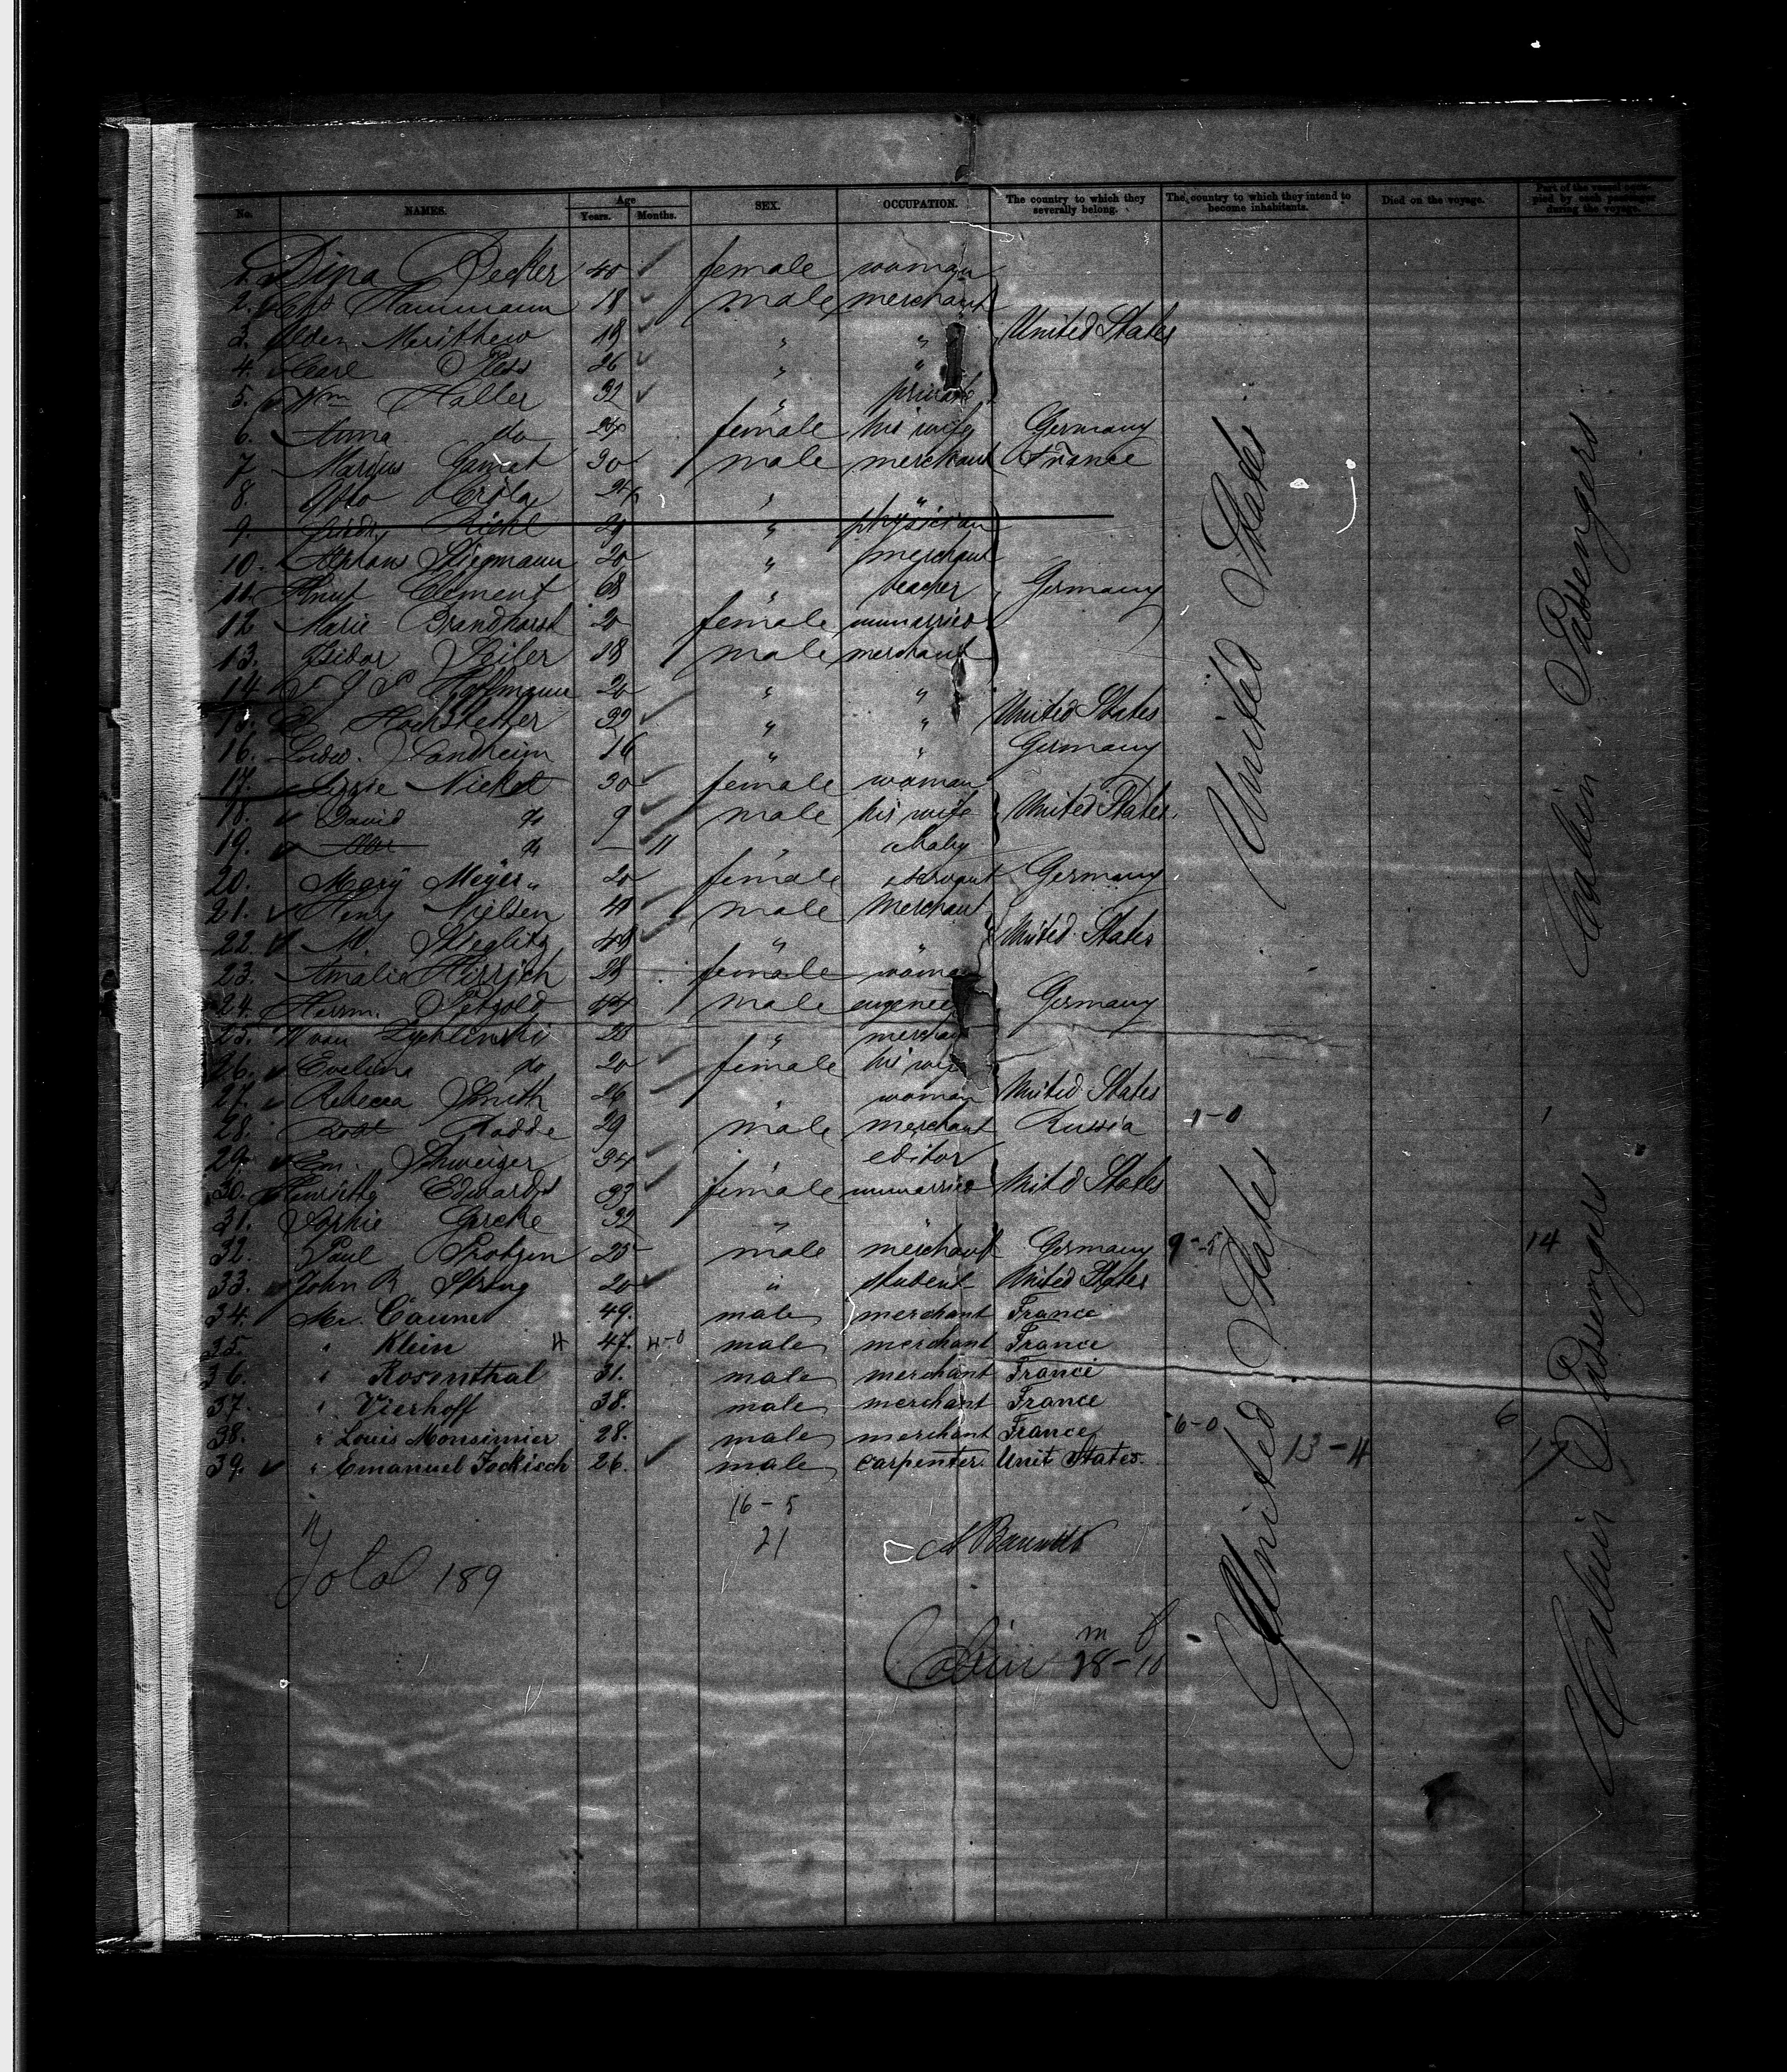 No. NAMES. Age Years. Months. SEX. OCCUPATION. The country to which they severally belong. The country to which they intend to become inhabitants. Died on the voyage. Part of the vessel occupied by each passenger during the voyage.
1. Dina Becker 40 female woman
2. Hammann 18 male merchant
3. Merithew 18 " " United States
4. Carl 26 " "
5. Wm Haller 32 " private
6. Anna do 24 female his wife Germany
7 Marius 30 male merchant France
8. Otto 24 " "
9. Riehl 29 " physician
10. Stegmann 20 " merchant
11. Knut Clement 68 " teacher Germany
12 Marie Brandhorst 20 female unmarried
13. Isidor 18 male merchant
14 Hoffmann 20 " "
15. Hochstetter 32 " " United States
16. Ludw. Sondheim 16 " " Germany
17. Lizzie Nickel 30 female woman
18. David do 9 male his wife United States
19. do — 11 " baby
20. Mary Meyer 20 female servant Germany
21. Henry Nielsen 40 male Merchant
22. M. Stieglitz 48 " " United States
23. Amalie Hirrsch 28 female woman
24. Herrm. Petzold 44 male engeneer Germany
25. W von Zychlinski 28 " merchant
26. Evelina do 20 female his wife
27. Rebecca Smith 26 " woman United States
28. Radde 29 male merchant Russia 1-0 1
29. Em. Schweizer 34 " editor
30. Henrietta Edwards 33 female unmarried Unitd States
31. Sophie Gercke 32 " "
32. Paul 25 male merchant Germany 9-5 14
33. John R Strong 20 " student United States
34. Mr. Caune 49. male merchant France
35. " Klein 4 47. 4-0 male merchant France
36. " Rosenthal 31. male merchant France
37. " Vierhoff 38. male merchant France
38. " Louis Monsimier 28. male merchant France 6-0 6
39. " Emanuel Jockisch 26. male carpenter. Unit States. 13-4 17
16-5
21
Total 189
m f
Cabin 28-10
United States
United States
Cabin Passengers
Cabin Passengers